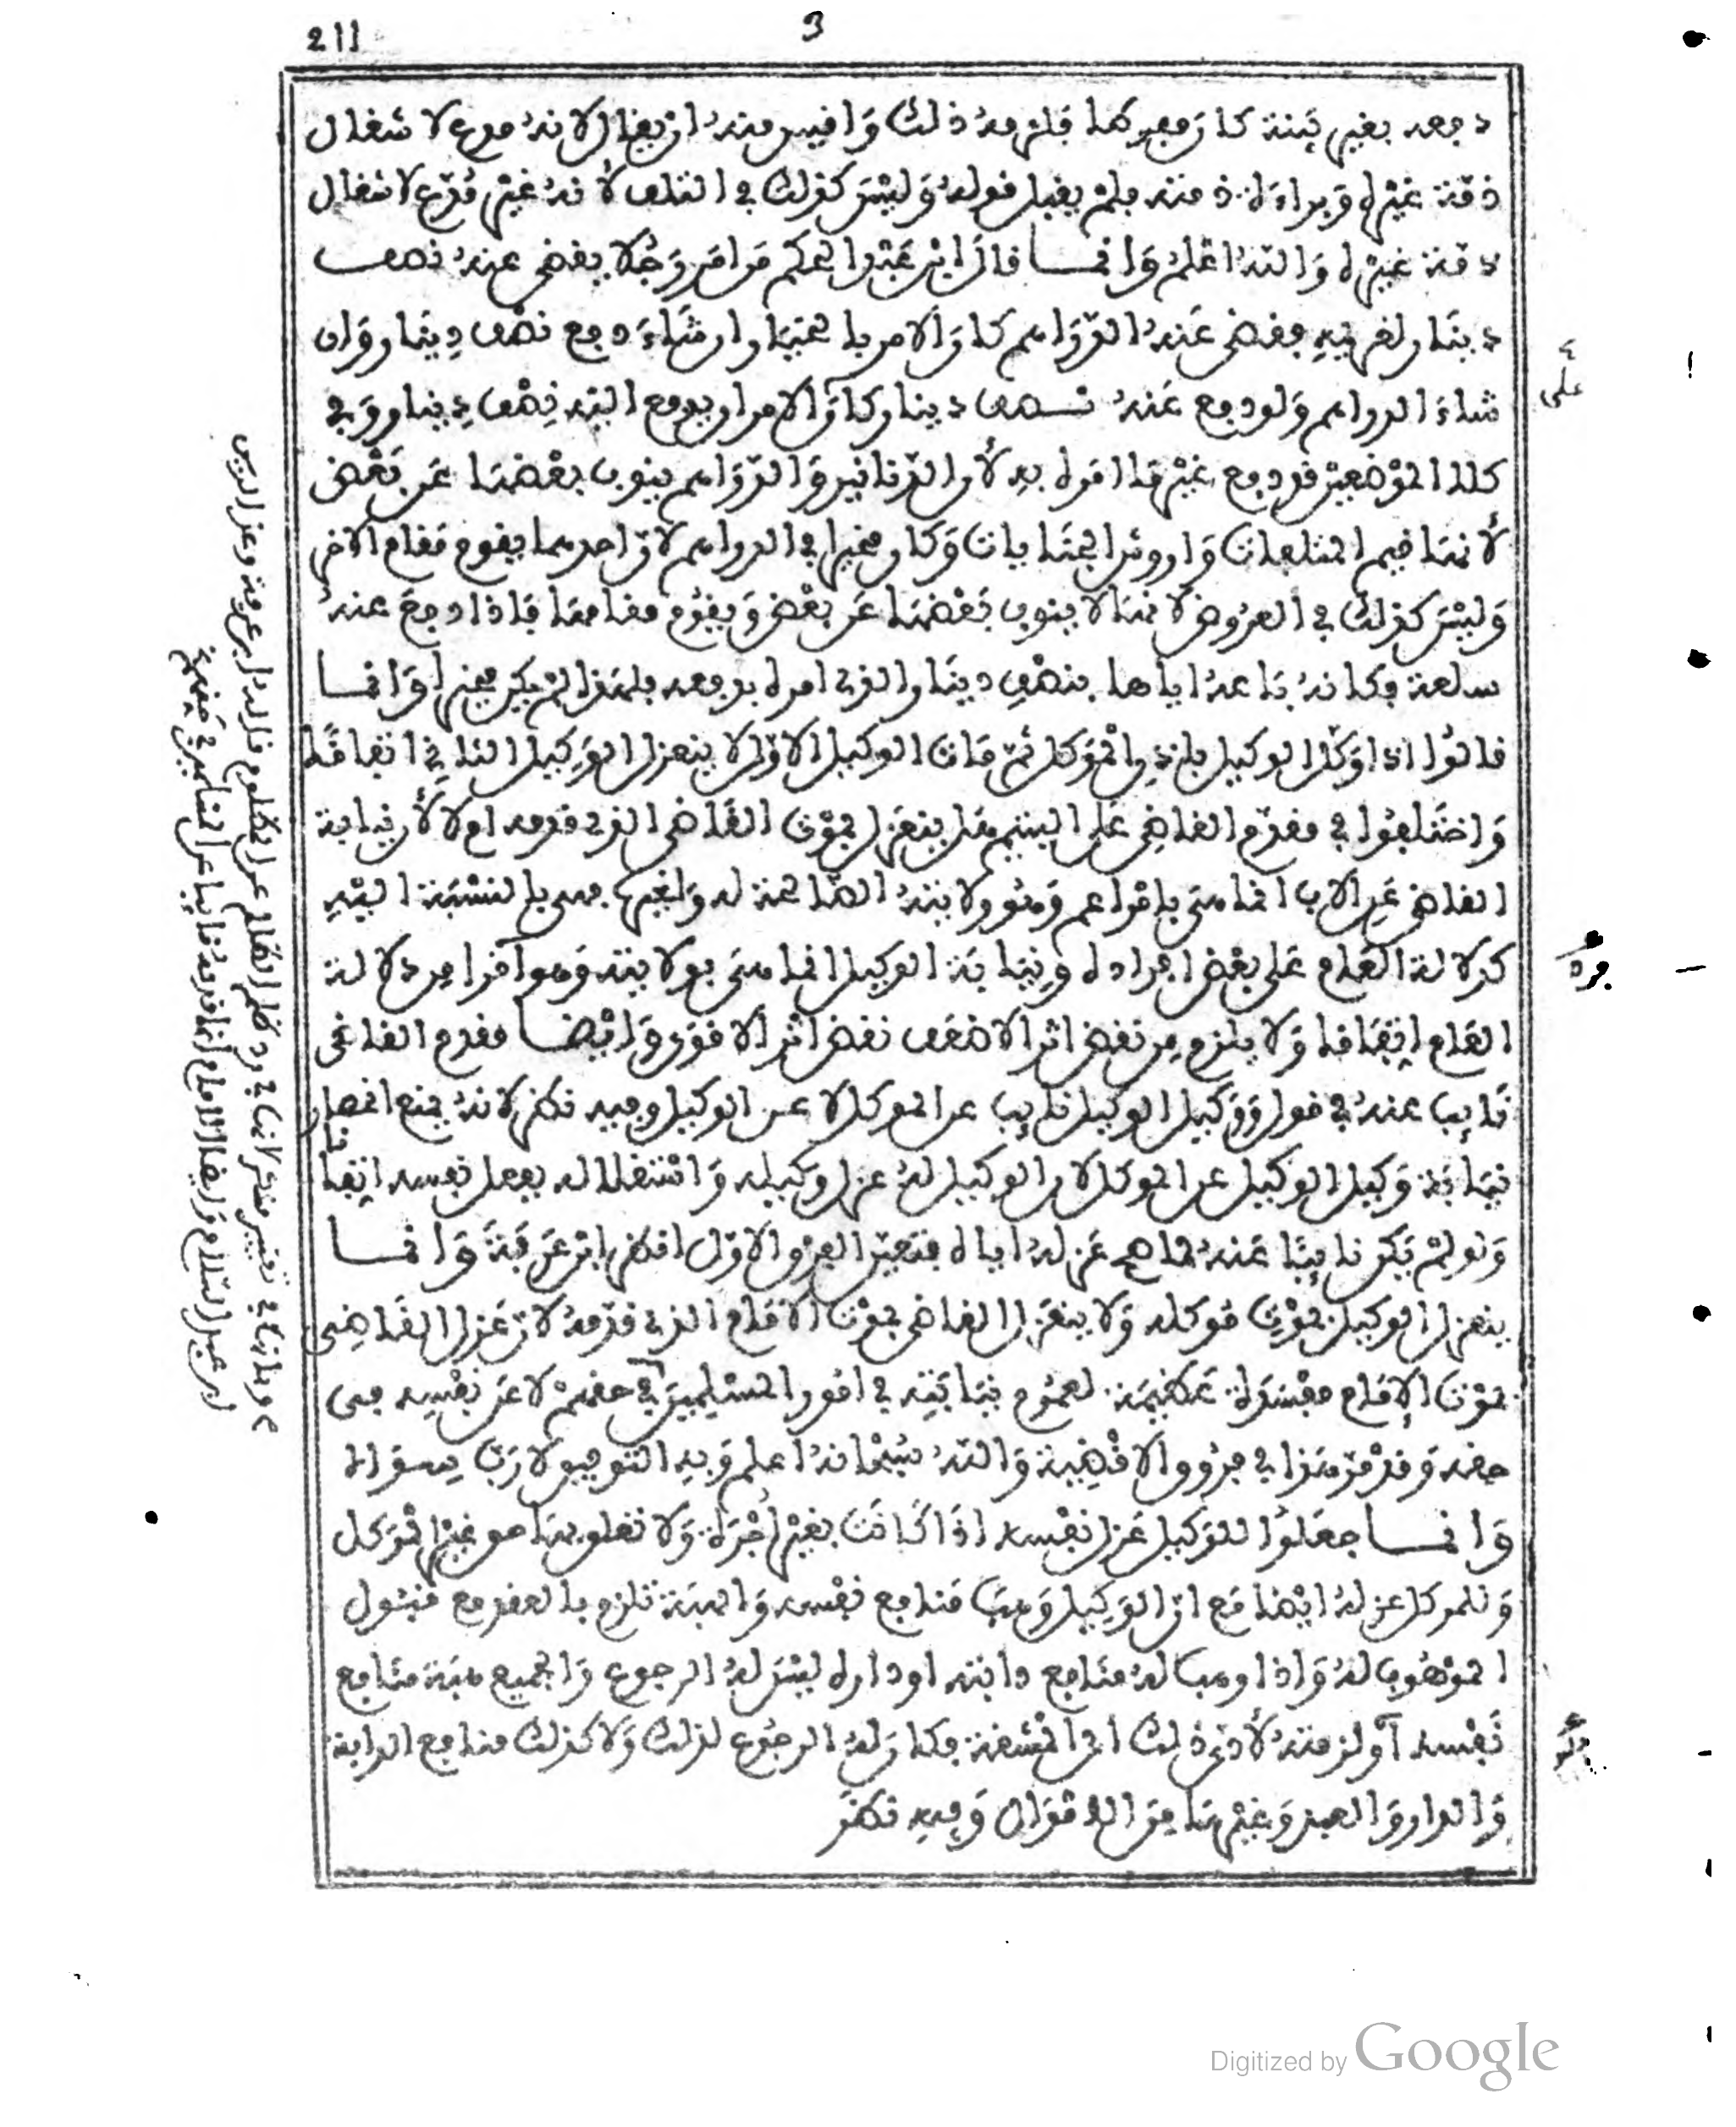 211
3
دفعه بغير بينة كان مفرطا فلزمه ذلك وافيس منه ان يقال لانه مدع لاشغال
ذمة غيره وبراءة ذمته فلم يقبل قوله وليس كذلك في التلف لأنه غير مدع لاشغال
ذمة غيره والله اعلم وانما قال ابن عبد الحكم من امر رجلا يقضي عنه نصف
دينار لغريمه فقضى عنه الدراهم كان الامر بالخيار ان شاء دفع نصف دينار وان
شاء الدراهم ولو دفع عنه نصف دينار كان الامر ان يدفع اليه نصف دينار وفي
كلا الموضعين قد دفع غير ما امره به لأن الدنانير والدراهم ينوب بعضها عن بعض
لأنها قيم المتلفات واروش الجنايات وكان مخيرا في الدراهم لان احدهما يقوم مقام الاخر
وليس كذلك في العروض لانها لا ينوب بعضها عن بعض ويقوم مقامها فاذا دفع عنه
سلعة فكانه باعه اياها بنصف دينار الذي امره بدفعه فلهذا لم يكن مخيرا وانما
قالوا اذا وكل الوكيل باذن الموكل ثم مات الوكيل الاول لا ينعزل الوكيل الثاني اتفاقا
واختلفوا في مقدم القاضي على اليتيم هل ينعزل بموت القاضي الذي قدمه ام لا لأن نيابة
القاضي عن الاب انما هي بامر اعم وهو ولايته الصالحة له ولغيره فهي بالنسبة اليه
كدلالة العام على بعض افراده ونيابة الوكيل انما هي بولايته وهو آكد من دلالة
العام اتفاقا ولا يلزم من نقض اثر الاضعف نقض اثر الاقوى وايضا مقدم القاضي
نائب عنه في قول ووكيل الوكيل نائب عن الموكل لا عن الوكيل وفيه نظر لانه يمنع انحصار
نيابة وكيل الوكيل عن الموكل لان الوكيل له عزل وكيله واستقلاله بفعل نفسه اتفاقا
ولو لم يكن نائبا عنه لما صح عزله اياه فتعين الفرق الاول انظر ابن عرفة وانما
ينعزل الوكيل بموت موكله ولا ينعزل القاضي بموت الامام الذي قدمه لان عزل القاضي
بموت الامام مفسدة عظيمة لعموم نيابته في امور المسلمين في حقهم لا عن نفسه في
حقه وقد مر هذا في فروق الاقضية والله سبحانه اعلم وبه التوفيق لا رب سواه
وانما جعلوا للوكيل عزل نفسه اذا كانت بغير اجرة ولا تعلق بها حق غير الموكل
وللموكل عزله ايضا مع ان الوكيل وهب منافع نفسه والهبة تلزم بالعقد مع قبول
الموهوب له واذا وهب له منافع دابته او داره ليس له الرجوع والجميع هبة منافع
نفسه آولا منه لأن في ذلك اكثر المشقة فكان له الرجوع لذلك ولا كذلك منافع الدابة
والدار والعبد وغيرها من الاموال وفيه نظر
على